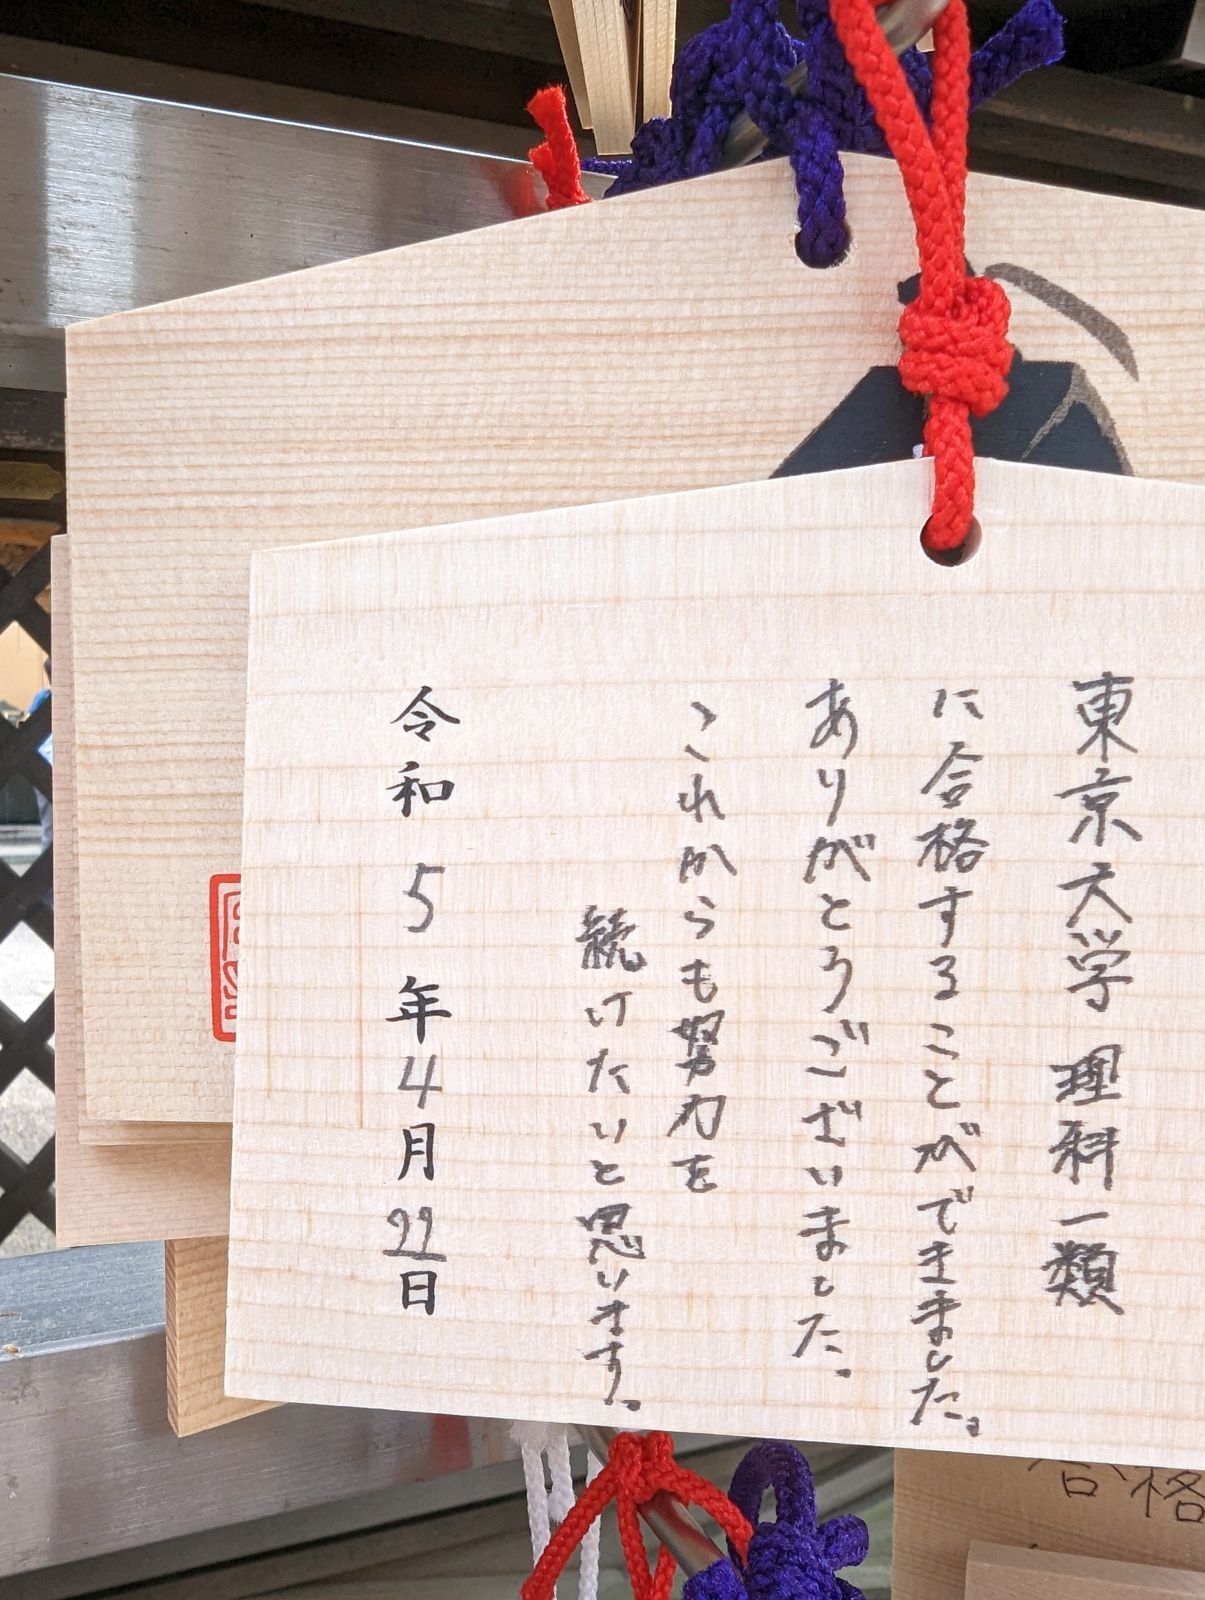 東京大学 理科一類
に合格することができました。
ありがとうございました。
これからも努力を
続けたいと思います。
令和 5 年4月22日
合格